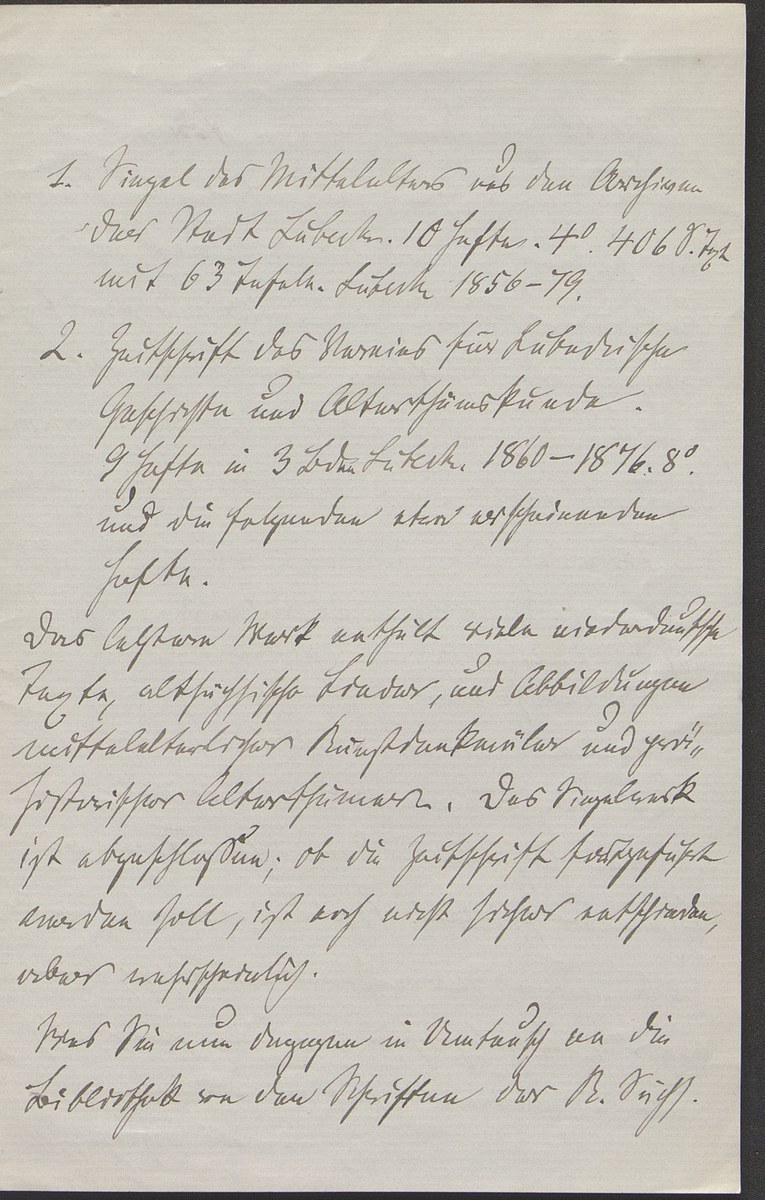 1. Siegel des Mittelalters aus den Archiven
der Stadt Lübeck. 10 Hefte. 4º. 406 S. Text
mit 63 Tafeln. Lübeck 1856–79.
2. Zeitschrift des Vereins für Lübeckische
Geschichte und Alterthumskunde.
9 Hefte in 3 Bden Lübeck. 1860–1876. 8º.
und die folgenden etwa erscheinenden
Hefte.
Das letztere Werk enthält viele niederdeutsche
Texte, altsächsische Lieder, und Abbildungen
mittelalterlicher Kunstdenkmäler und prä„
historischer Alterthümer. Das Siegelwerk
ist abgeschlossen; ob die Zeitschrift fortgeführt
werden soll, ist noch nicht sicher entschieden,
aber wahrscheinlich.
Was Sie nun dagegen in Umtausch an die
Bibliothek von den Schriften der K. Sächs.